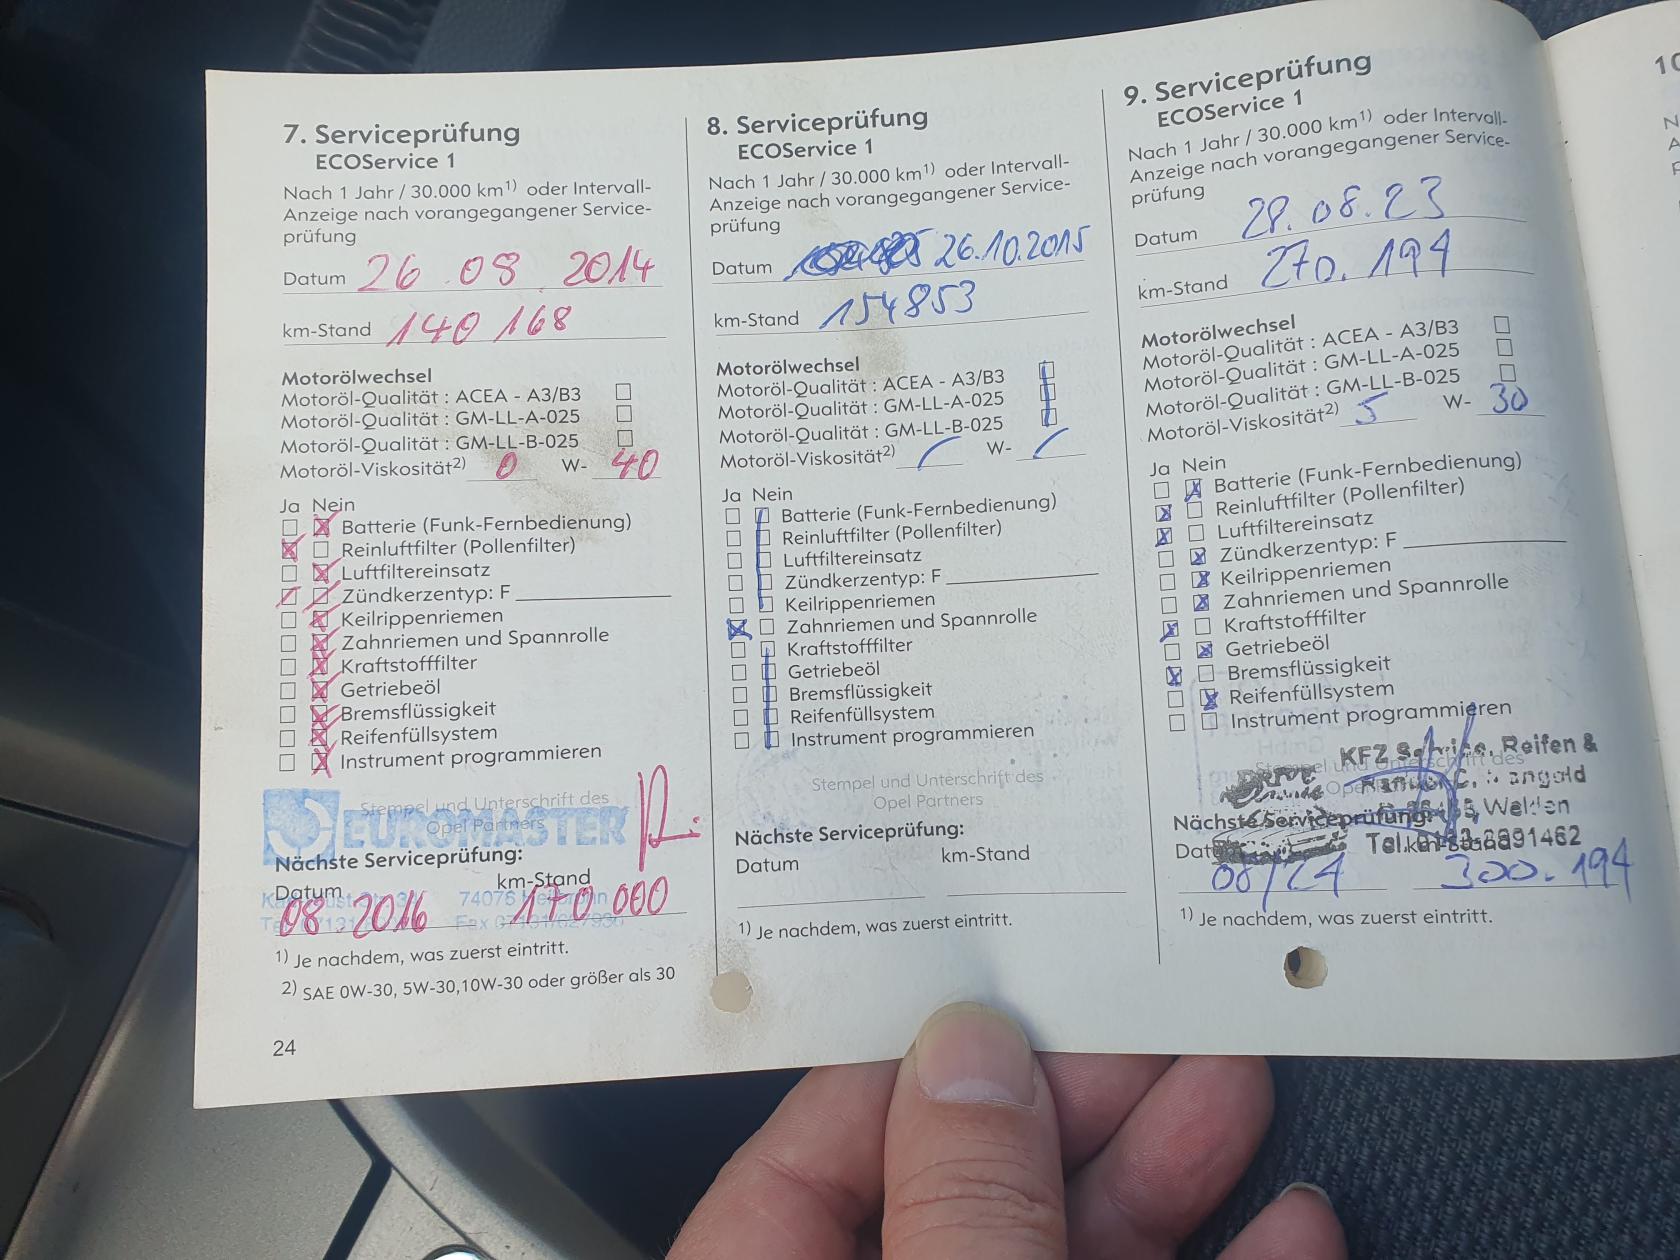 7. Serviceprüfung
ECOService 1
Nach 1 Jahr / 30.000 km1) oder Intervall-
Anzeige nach vorangegangener Service-
prüfung
Datum 26.08.2014
km-Stand 140 168
Motorölwechsel
Motoröl-Qualität : ACEA - A3/B3
Motoröl-Qualität : GM-LL-A-025
Motoröl-Qualität : GM-LL-B-025
Motoröl-Viskosität2) 0 W- 40
Ja Nein
Batterie (Funk-Fernbedienung)
Reinluftfilter (Pollenfilter)
Luftfiltereinsatz
Zündkerzentyp: F
Keilrippenriemen
Zahnriemen und Spannrolle
Kraftstofffilter
Getriebeöl
Bremsflüssigkeit
Reifenfüllsystem
Instrument programmieren
Stempel und Unterschrift des
Opel Partners
EUROMASTER
Nächste Serviceprüfung:
Datum km-Stand
74076
08.2016 170 000
1) Je nachdem, was zuerst eintritt.
2) SAE 0W-30, 5W-30,10W-30 oder größer als 30
24
8. Serviceprüfung
ECOService 1
Nach 1 Jahr / 30.000 km1) oder Intervall-
Anzeige nach vorangegangener Service-
prüfung
Datum 26.10.2015
km-Stand 154853
Motorölwechsel
Motoröl-Qualität : ACEA - A3/B3
Motoröl-Qualität : GM-LL-A-025
Motoröl-Qualität : GM-LL-B-025
Motoröl-Viskosität2) W-
Ja Nein
Batterie (Funk-Fernbedienung)
Reinluftfilter (Pollenfilter)
Luftfiltereinsatz
Zündkerzentyp: F
Keilrippenriemen
Zahnriemen und Spannrolle
Kraftstofffilter
Getriebeöl
Bremsflüssigkeit
Reifenfüllsystem
Instrument programmieren
Stempel und Unterschrift des
Opel Partners
Nächste Serviceprüfung:
Datum km-Stand
1) Je nachdem, was zuerst eintritt.
9. Serviceprüfung
ECOService 1
Nach 1 Jahr / 30.000 km1) oder Intervall-
Anzeige nach vorangegangener Service-
prüfung
Datum 28.08.23
km-Stand 270.194
Motorölwechsel
Motoröl-Qualität : ACEA - A3/B3
Motoröl-Qualität : GM-LL-A-025
Motoröl-Qualität : GM-LL-B-025
Motoröl-Viskosität2) 5 W- 30
Ja Nein
Batterie (Funk-Fernbedienung)
Reinluftfilter (Pollenfilter)
Luftfiltereinsatz
Zündkerzentyp: F
Keilrippenriemen
Zahnriemen und Spannrolle
Kraftstofffilter
Getriebeöl
Bremsflüssigkeit
Reifenfüllsystem
Instrument programmieren
KFZ Service, Reifen &
Welden
Nächste Serviceprüfung:
Tel.
08/24 300.194
1) Je nachdem, was zuerst eintritt.